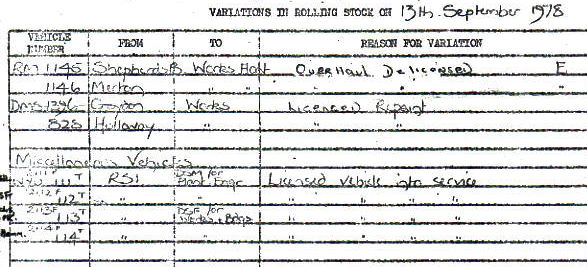 VARIATIONS IN ROLLING STOCK ON 13th September 1978
VEHICLE NUMBER FROM TO REASON FOR VARIATION
RM 1145 Shepherds B. Works Overhaul Delicensed E
1146 Merton " " " " "
DMS 1396 Croydon Works Licensed Repaint
828 Holloway " " "
Miscellaneous Vehicles
2111F
111T RS1 DSM/or Plant Engr Licensed vehicle into service
2112F
112T " " " " " "
2113F
113T " DSF/or Works & Bdgs " " " "
2114F
114T " " " " " "